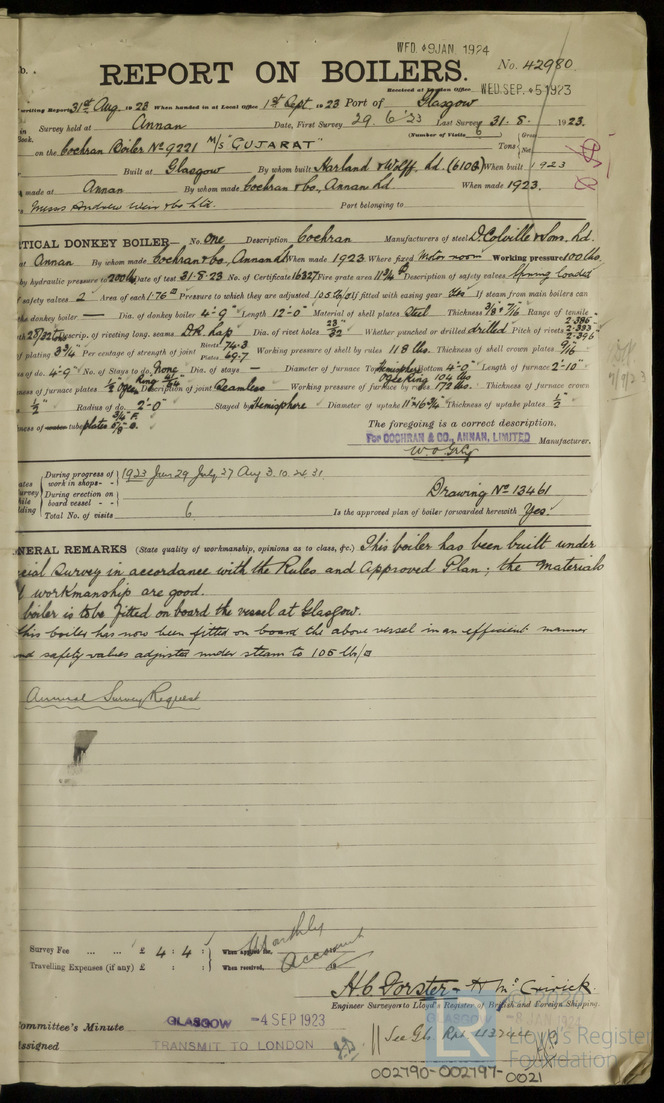 WED. 9 JAN 1924
No. 42980
REPORT ON BOILERS.
Received at London Office WED. SEP. 5 1923
writing Report 31st Aug 1923 When handed in at Local Office 1st Sept 1923 Port of Glasgow
Survey held at Annan Date, First Survey 29. 6. 23 Last Survey 31. 8. 1923.
Book. (Number of Visits 6) Gross
on the Cochran Boiler No 9221 M/S "GUJARAT" Tons Net
Built at Glasgow By whom built Harland & Wolff, Ld. (610G) When built 1923
made at Annan By whom made Cochran & Co., Annan Ld When made 1923.
Messrs Andrew Weir & Co Ltd. Port belonging to
TICAL DONKEY BOILER— No. One Description Cochran Manufacturers of steel D. Colville & Sons, Ld.
at Annan By whom made Cochran & Co., Annan Ld When made 1923 Where fixed Motor room Working pressure 100 lbs.
by hydraulic pressure to 200 lbs Date of test 31-8-23 No. of Certificate 16327 Fire grate area 11 3/4 Description of safety valves Spring loaded
f safety valves 2 Area of each 1.76 Pressure to which they are adjusted 105 lb/□ If fitted with easing gear Yes If steam from main boilers can
he donkey boiler — Dia. of donkey boiler 4'-9" Length 12'-0" Material of shell plates Steel Thickness 3/8" & 7/16" Range of tensile
28/32 tons Descrip. of riveting long. seams D.R. Lap Dia. of rivet holes 23/32" Whether punched or drilled drilled Pitch of rivets 2.396 2.393 2.396
of plating 3 3/4" Per centage of strength of joint Rivets 74.3 Plates 69.7 Working pressure of shell by rules 118 lbs. Thickness of shell crown plates 9/16"
s of do. 4'-9" No. of Stays to do. None Dia. of stays — Diameter of furnace Top Hemisphere Bottom 4'-0" Length of furnace 2'-10"
ness of furnace plates 1/2" Ogee Ring 41/64" Description of joint Seamless Working pressure of furnace by rules Ogee Ring 104 lbs 172 lbs. Thickness of furnace crown
1/2" Radius of do. 2'-0" Stayed by Hemisphere Diameter of uptake 11" × 16 3/4" Thickness of uptake plates 1/2"
ness of water tube plates 3/4" F. 5/8" B.
The foregoing is a correct description,
For COCHRAN & CO., ANNAN, LIMITED Manufacturer.
During progress of work in shops - - 1923 Jun 29 July 27 Aug 3. 10. 24. 31
During erection on board vessel - -
Total No. of visits 6
Drawing No 13461
Is the approved plan of boiler forwarded herewith Yes.
NERAL REMARKS (State quality of workmanship, opinions as to class, &c.) This boiler has been built under
cial Survey in accordance with the Rules and Approved Plan; the materials
& workmanship are good.
boiler is to be fitted on board the vessel at Glasgow.
This boiler has now been fitted on board the above vessel in an efficient manner
nd safety valves adjusted under steam to 105 lb/□
Annual Survey Request
Survey Fee ... ... £ 4 : 4 : When applied for, Monthly
Travelling Expenses (if any) £ : : When received, Account 19
H.C. Forster & H. Mc
Engineer Surveyors to Lloyd's Register of British and Foreign Shipping.
Committee's Minute GLASGOW -4 SEP 1923
ssigned TRANSMIT TO LONDON
See Gls Rpt 43744
LR Lloyd's Register Foundation
002790-002797-0021